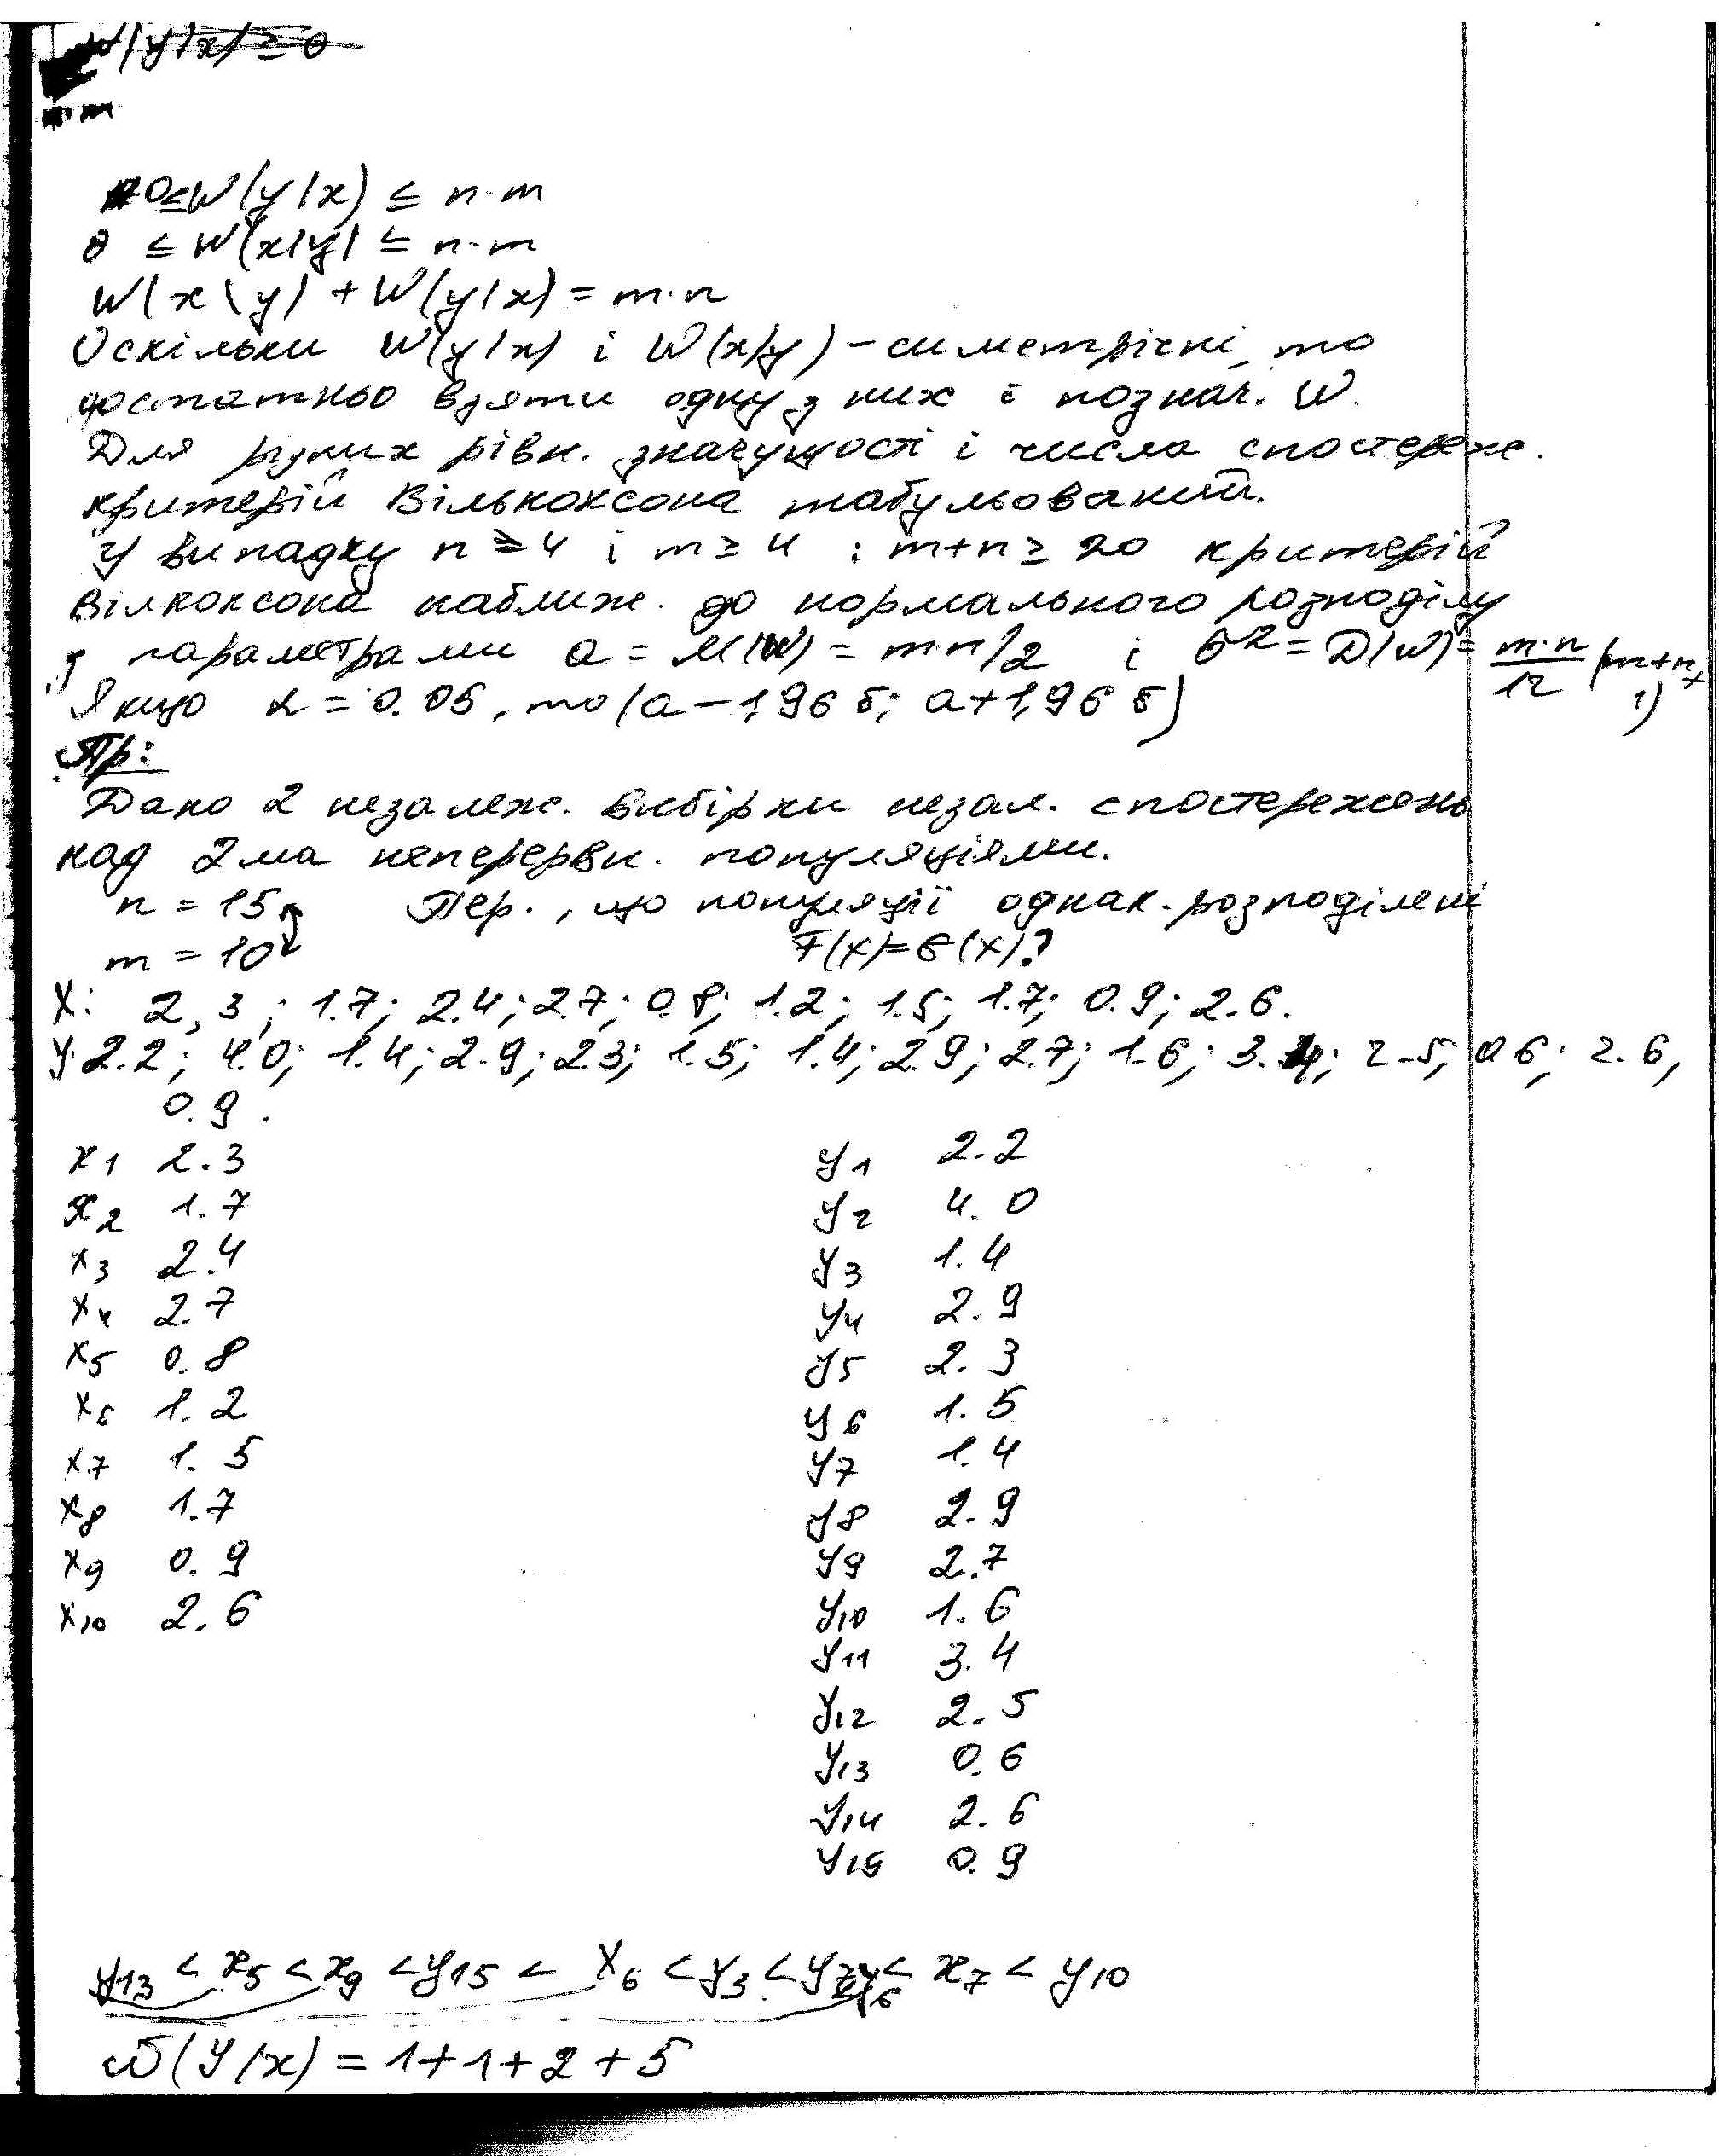 W(y/x) ≥ 0
n·m
0 ≤ W(y/x) ≤ n·m
0 ≤ W(x/y) ≤ n·m
W(x\y) + W(y/x) = m·n
Оскільки W(y/x) і W(x/y) – симетрічні, то
достатньо взяти одну з них і познач. W.
Для різних рівн. значущості і числа спостереж.
критерій Вількоксона табульований.
У випадку n ≥ 4 і m ≥ 4 ; m+n ≥ 20 критерій
Вілкоксона наближ. до нормального розподілу
з параметрами a = M(W) = m·n/2 і σ² = D(W) = m·n/12 (m+n+1)
Якщо α = 0.05, то (a – 1,96 σ; a + 1,96 σ)
Пр:
Дано 2 незалеж. вибірки незал. спостережень
над 2ма неперервн. популяціями.
n = 15 Пер., що популяції однак. розподілені
m = 10 F(x) = G(x)?
X: 2,3; 1.7; 2.4; 2.7; 0.8; 1.2; 1.5; 1.7; 0.9; 2.6.
Y: 2.2; 4.0; 1.4; 2.9; 2.3; 1.5; 1.4; 2.9; 2.7; 1.6; 3.4; 2.5; 0.6; 2.6,
0.9.
x1 2.3 y1 2.2
x2 1.7 y2 4.0
x3 2.4 y3 1.4
x4 2.7 y4 2.9
x5 0.8 y5 2.3
x6 1.2 y6 1.5
x7 1.5 y7 1.4
x8 1.7 y8 2.9
x9 0.9 y9 2.7
x10 2.6 y10 1.6
y11 3.4
y12 2.5
y13 0.6
y14 2.6
y15 0.9
y13 < x5 < x9 < y15 < x6 < y3 < y7 y6 < x7 < y10
W(Y/x) = 1+1+2+5